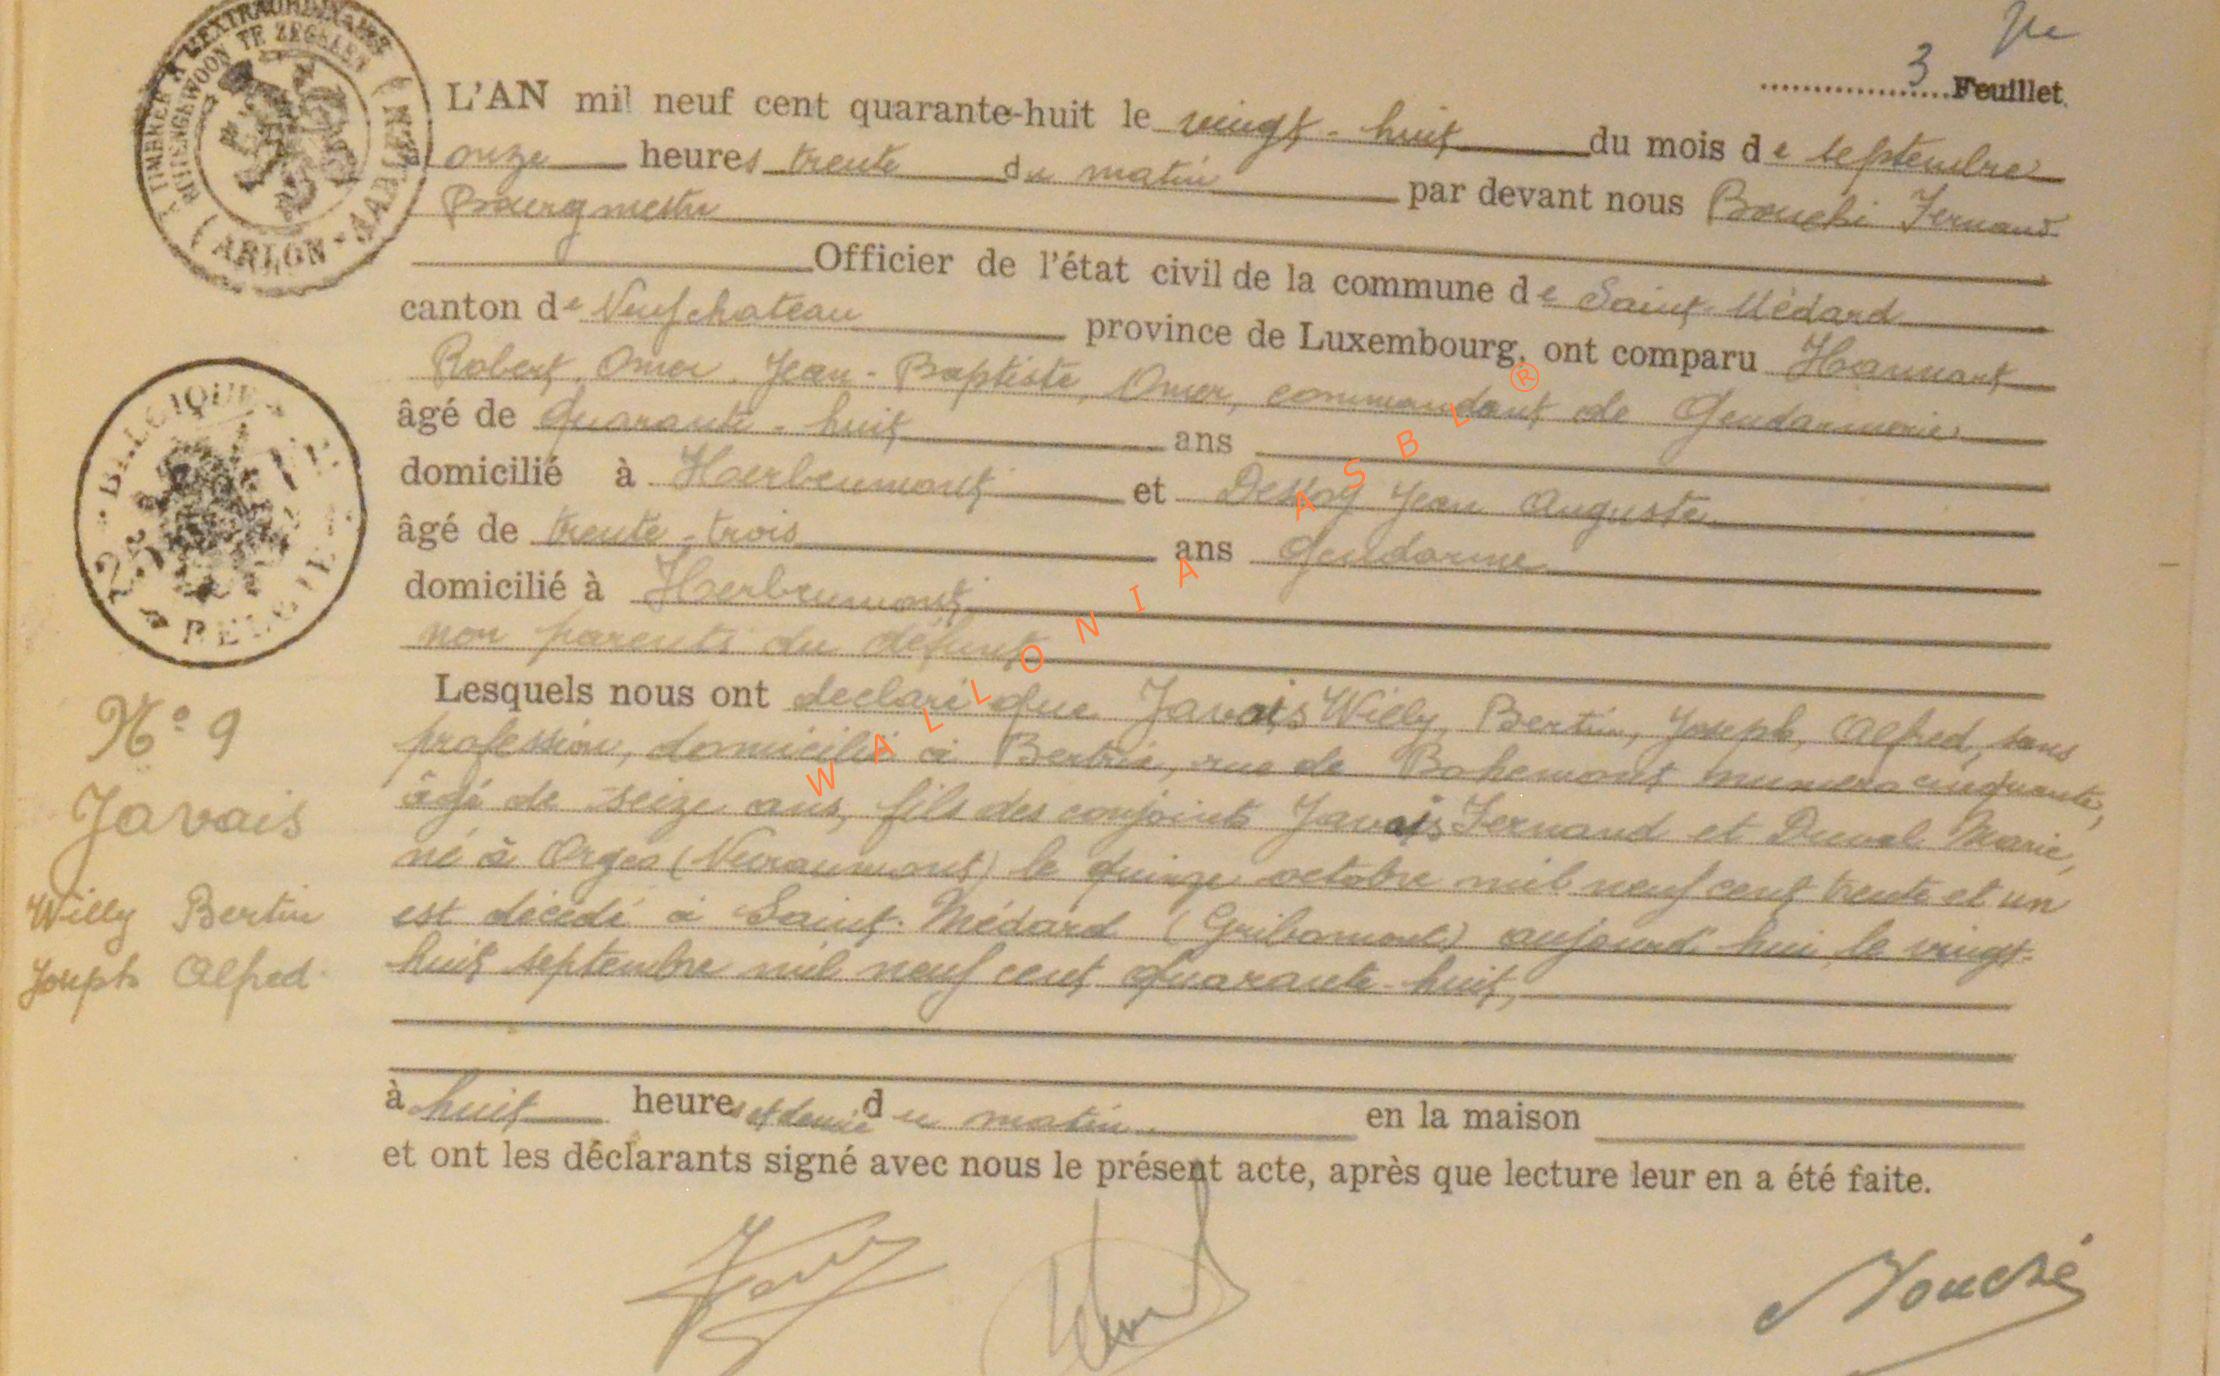 3 Feuillet
L'AN mil neuf cent quarante-huit le vingt-huit du mois de septembre
onze heures trente du matin par devant nous Bouché Fernand
Bourgmestre
Officier de l'état civil de la commune de Saint-Médard
canton de Neufchateau province de Luxembourg, ont comparu Hannart
Robert, Omer, Jean-Baptiste, Omer, commandant de Gendarmerie
âgé de quarante-huit ans
domicilié à Herbeumont et Dessoy Jean Auguste
âgé de trente-trois ans Gendarme
domicilié à Herbeumont
non parents du défunt
Lesquels nous ont déclaré que Javais Willy, Bertin, Joseph, Alfred, sans
profession, domicilié à Bertrix, rue de Bohemont numéro cinquante,
âgé de seize ans, fils des conjoints Javais Fernand et Duval Marie,
né à Orgeo (Nevraumont) le quinze octobre mil neuf cent trente et un
est décédé à Saint-Médard (Gribomont) aujourd'hui le vingt-
huit septembre mil neuf cent quarante-huit,
à huit heures et demie du matin en la maison
et ont les déclarants signé avec nous le présent acte, après que lecture leur en a été faite.
Bouché
N° 9
Javais
Willy Bertin
Joseph Alfred
TIMBRER A L'EXTRAORDINAIRE
BUITENGEWOON TE ZEGELEN
ARLON - AARLEN
BELGIQUE
BELGIE
WALLONIA ASBL ®